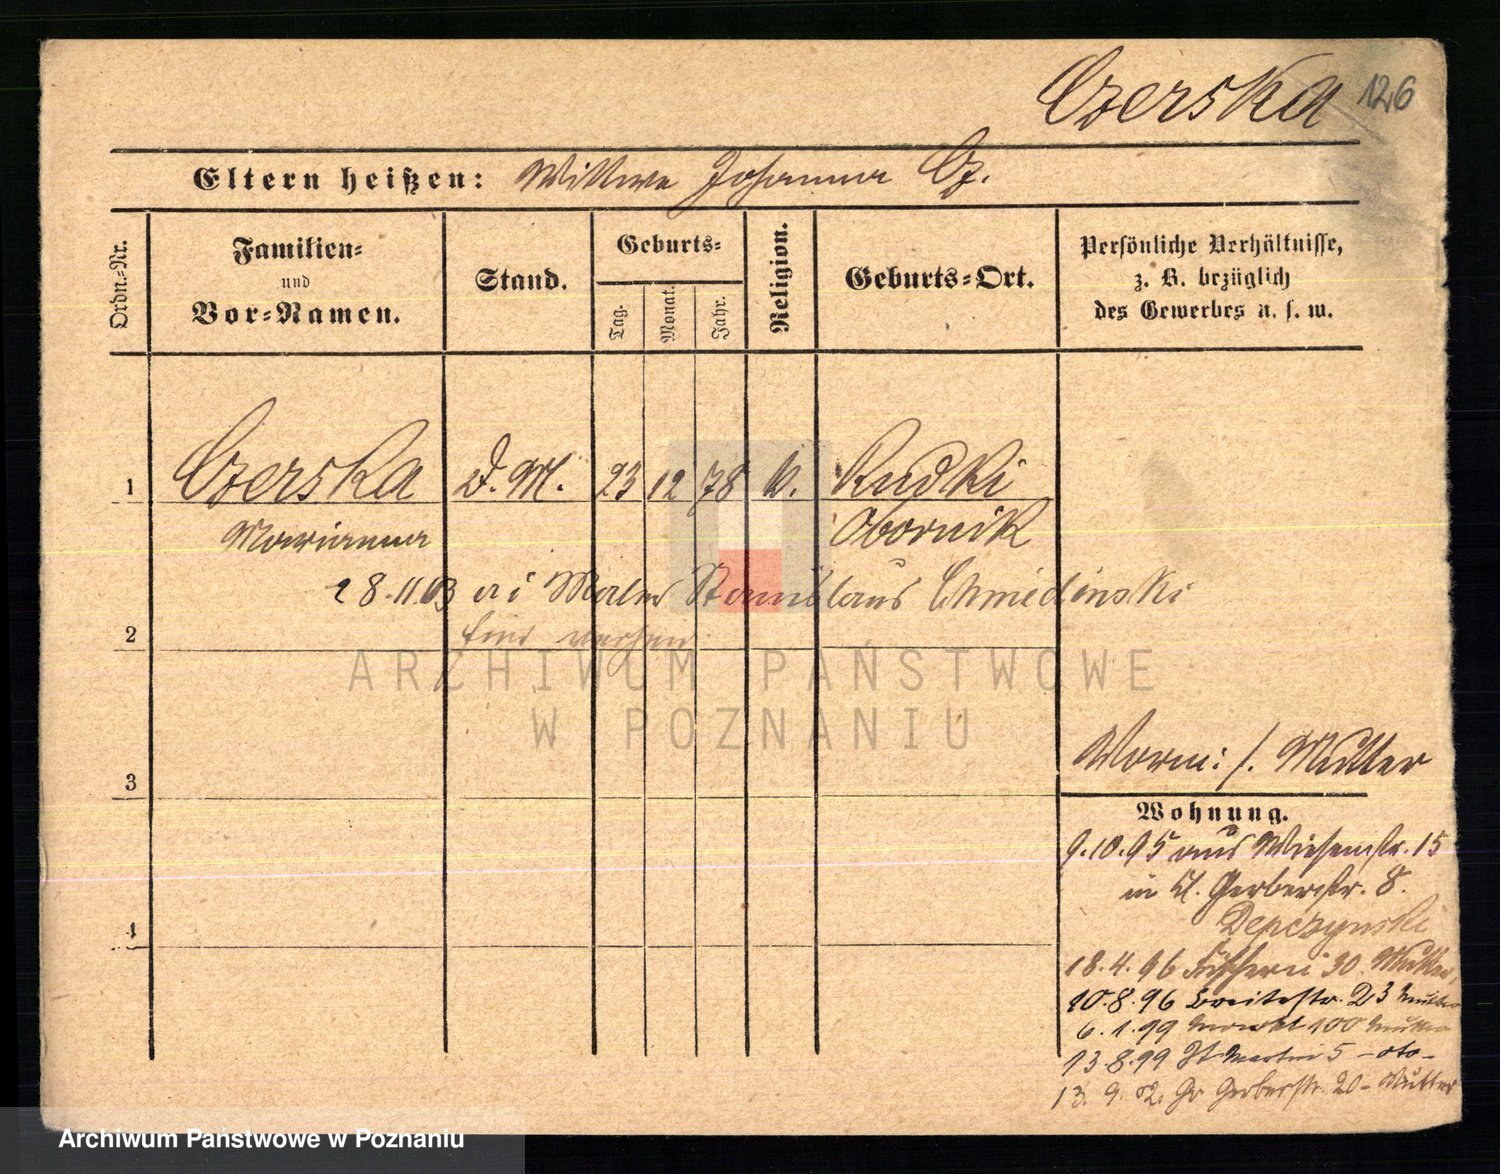 Czerska 126
Eltern heißen: Wittwe Johanna Cz.
Ordn.-Nr.
Familien-
und
Vor-Namen.
Stand.
Geburts-
Tag.
Monat.
Jahr.
Religion.
Geburts-Ort.
Persönliche Verhältnisse,
z. B. bezüglich
des Gewerbes u. s. w.
1 Czerska D. M. 23 12 78 k. Rudki
Marianna Obornik
28.11.03 Maler Stanislaus Chmielinski
2
ARCHIWUM PAŃSTWOWE
W POZNANIU
3
Vorm: s. Mutter
Wohnung.
9.10.95 aus Wiesenstr. 15
in kl. Gerberstr. 8.
Depczynski
4
18.4.96 Fischerei 30 Mutter,
10.8.96 Breitestr. 23 Mutter
6.1.99 Markt 100 Mutter
13.8.99 St Martin 5 - dto -
13.9.02. Gr Gerberstr. 20 - Mutter
Archiwum Państwowe w Poznaniu